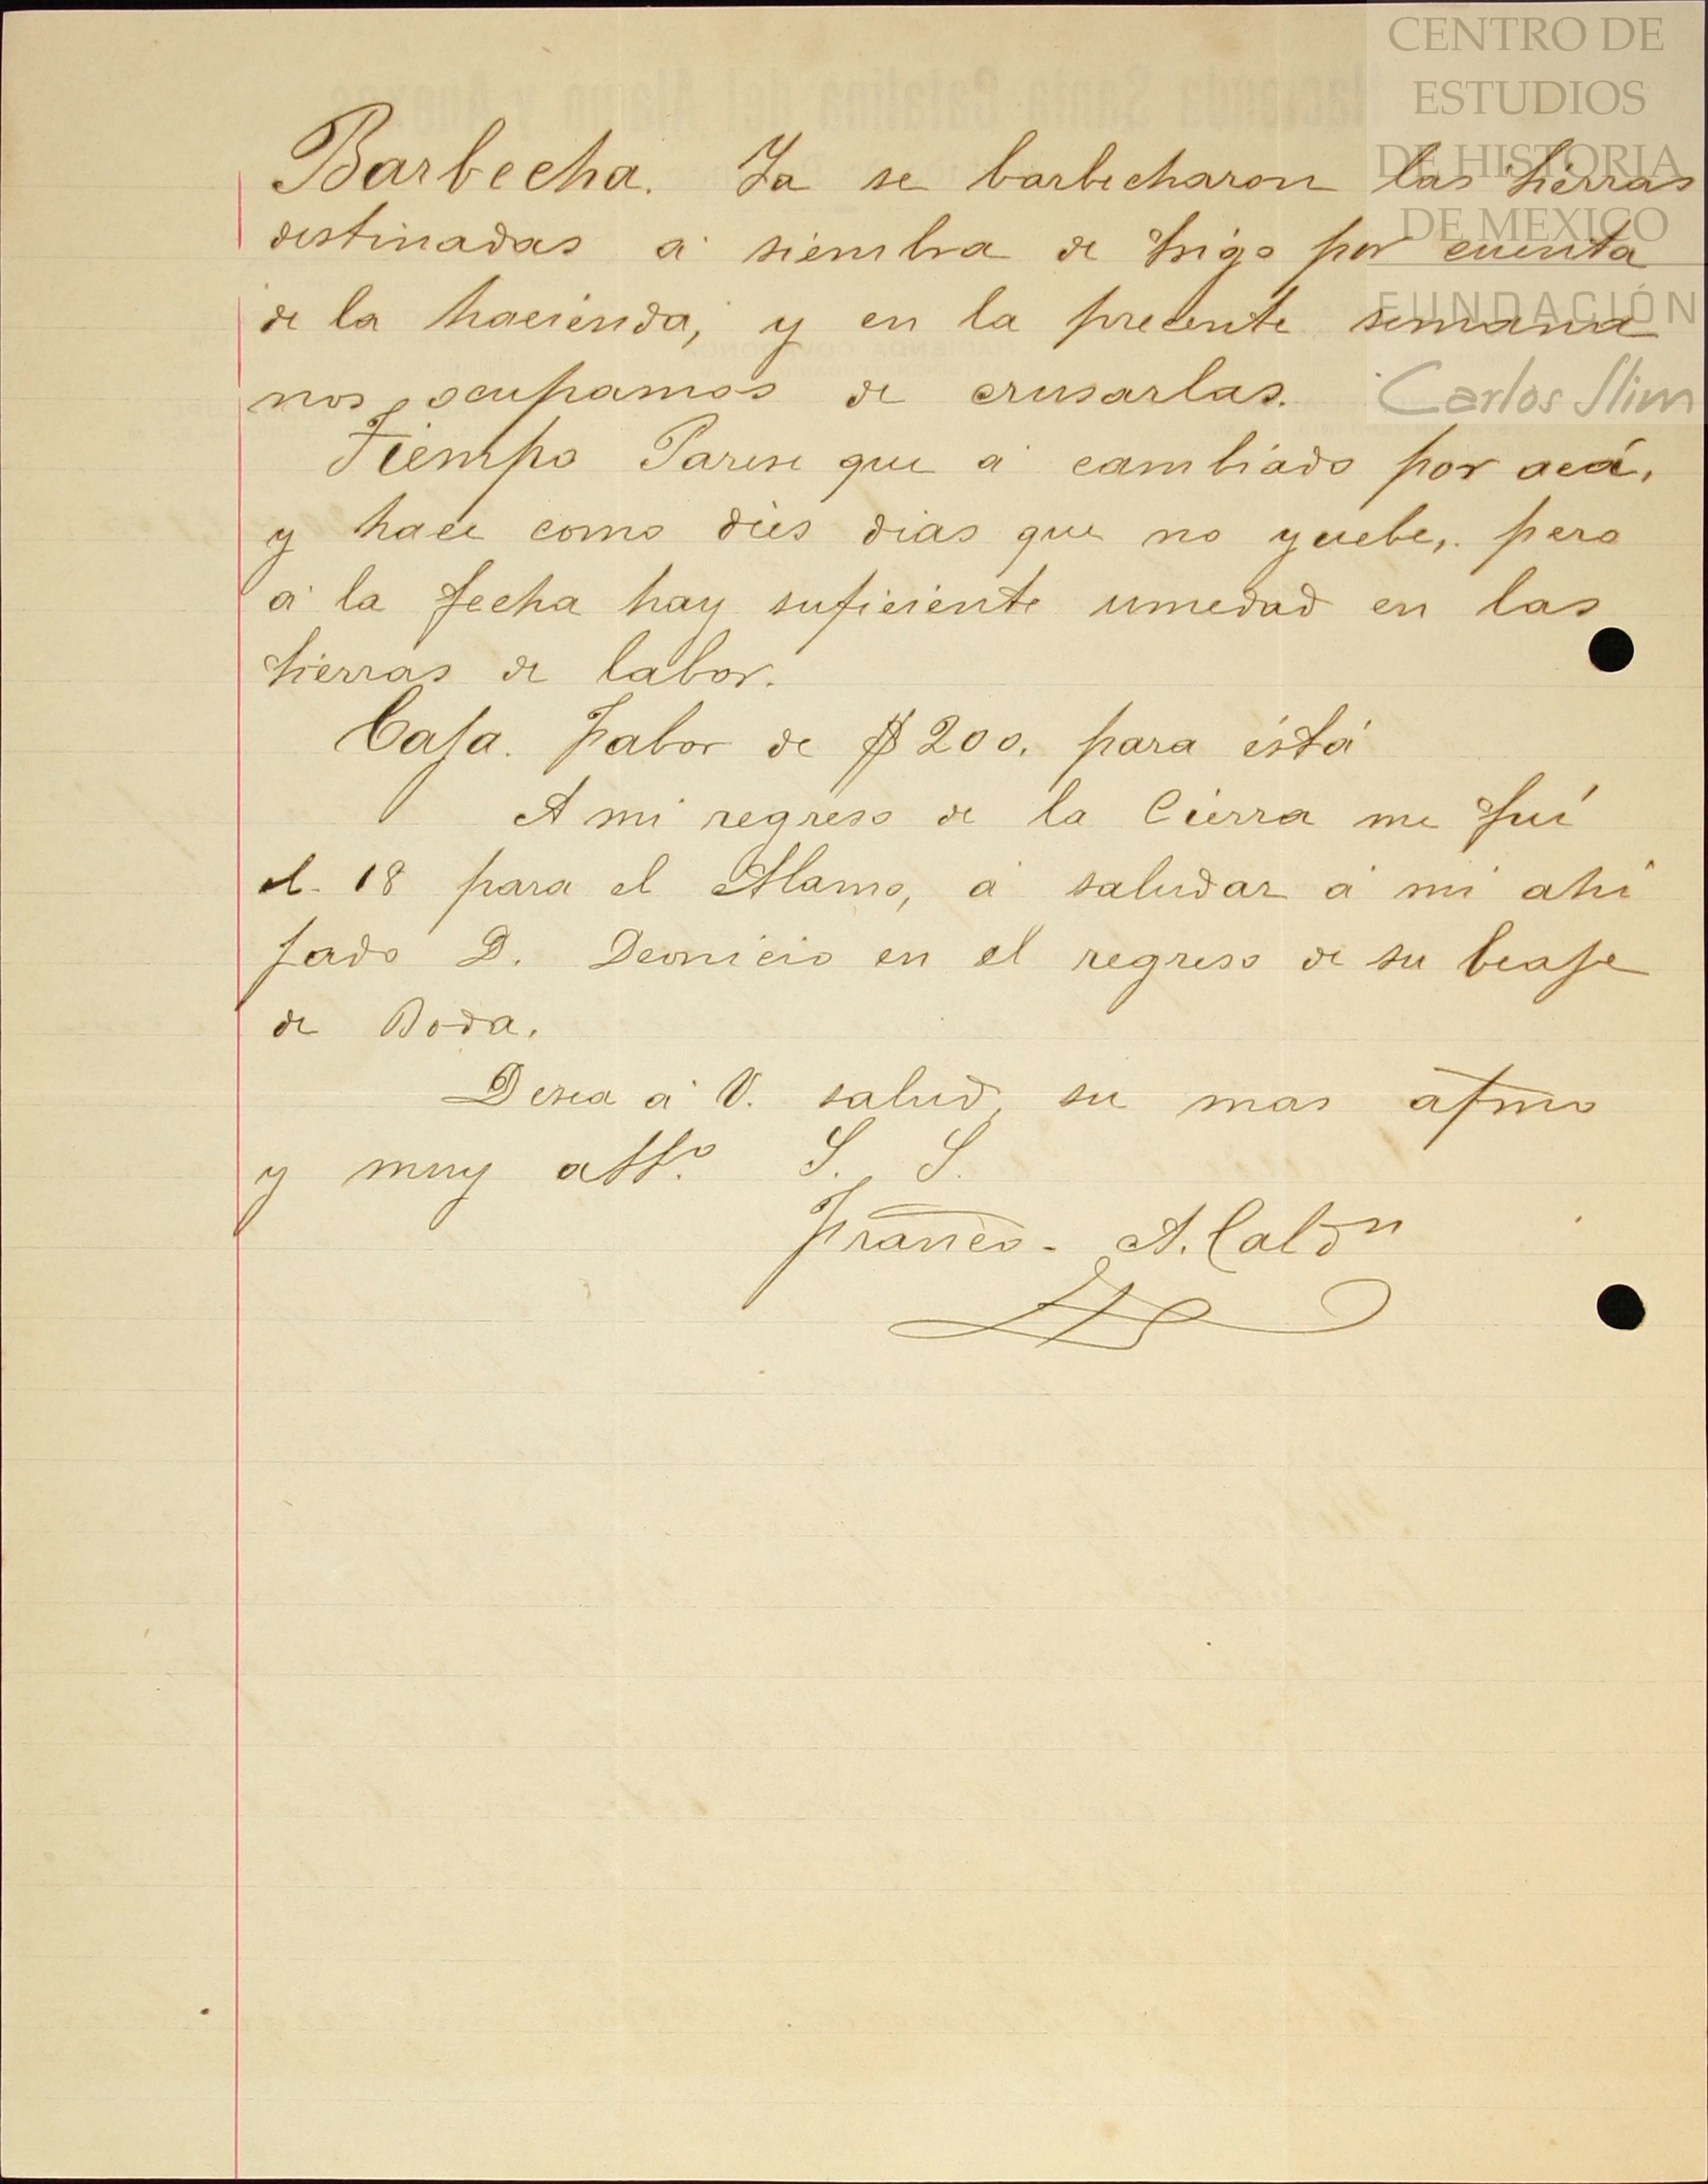 CENTRO DE
ESTUDIOS
DE HISTORIA
DE MEXICO
FUNDACIÓN
Carlos Slim
Barbecha. Ya se barbecharon las tierras
destinadas á siembra de trigo por cuenta
de la hacienda, y en la precente semana
nos ocupamos de crusarlas.
Tiempo Parese que á cambiado por acá,
y hace como dies dias que no yuebe, pero
á la fecha hay suficiente umedad en las
tierras de labor.
Caja. Fabor de $200. para ésta
A mi regreso de la Cierra me fuí
el 18 para el Alamo, á saludar á mi ahi
jado D. Deonicio en el regreso de su beaje
de Boda.
Desea á V. salud, su mas afmo
y muy atto. S. S.
Franco. A. Caldn